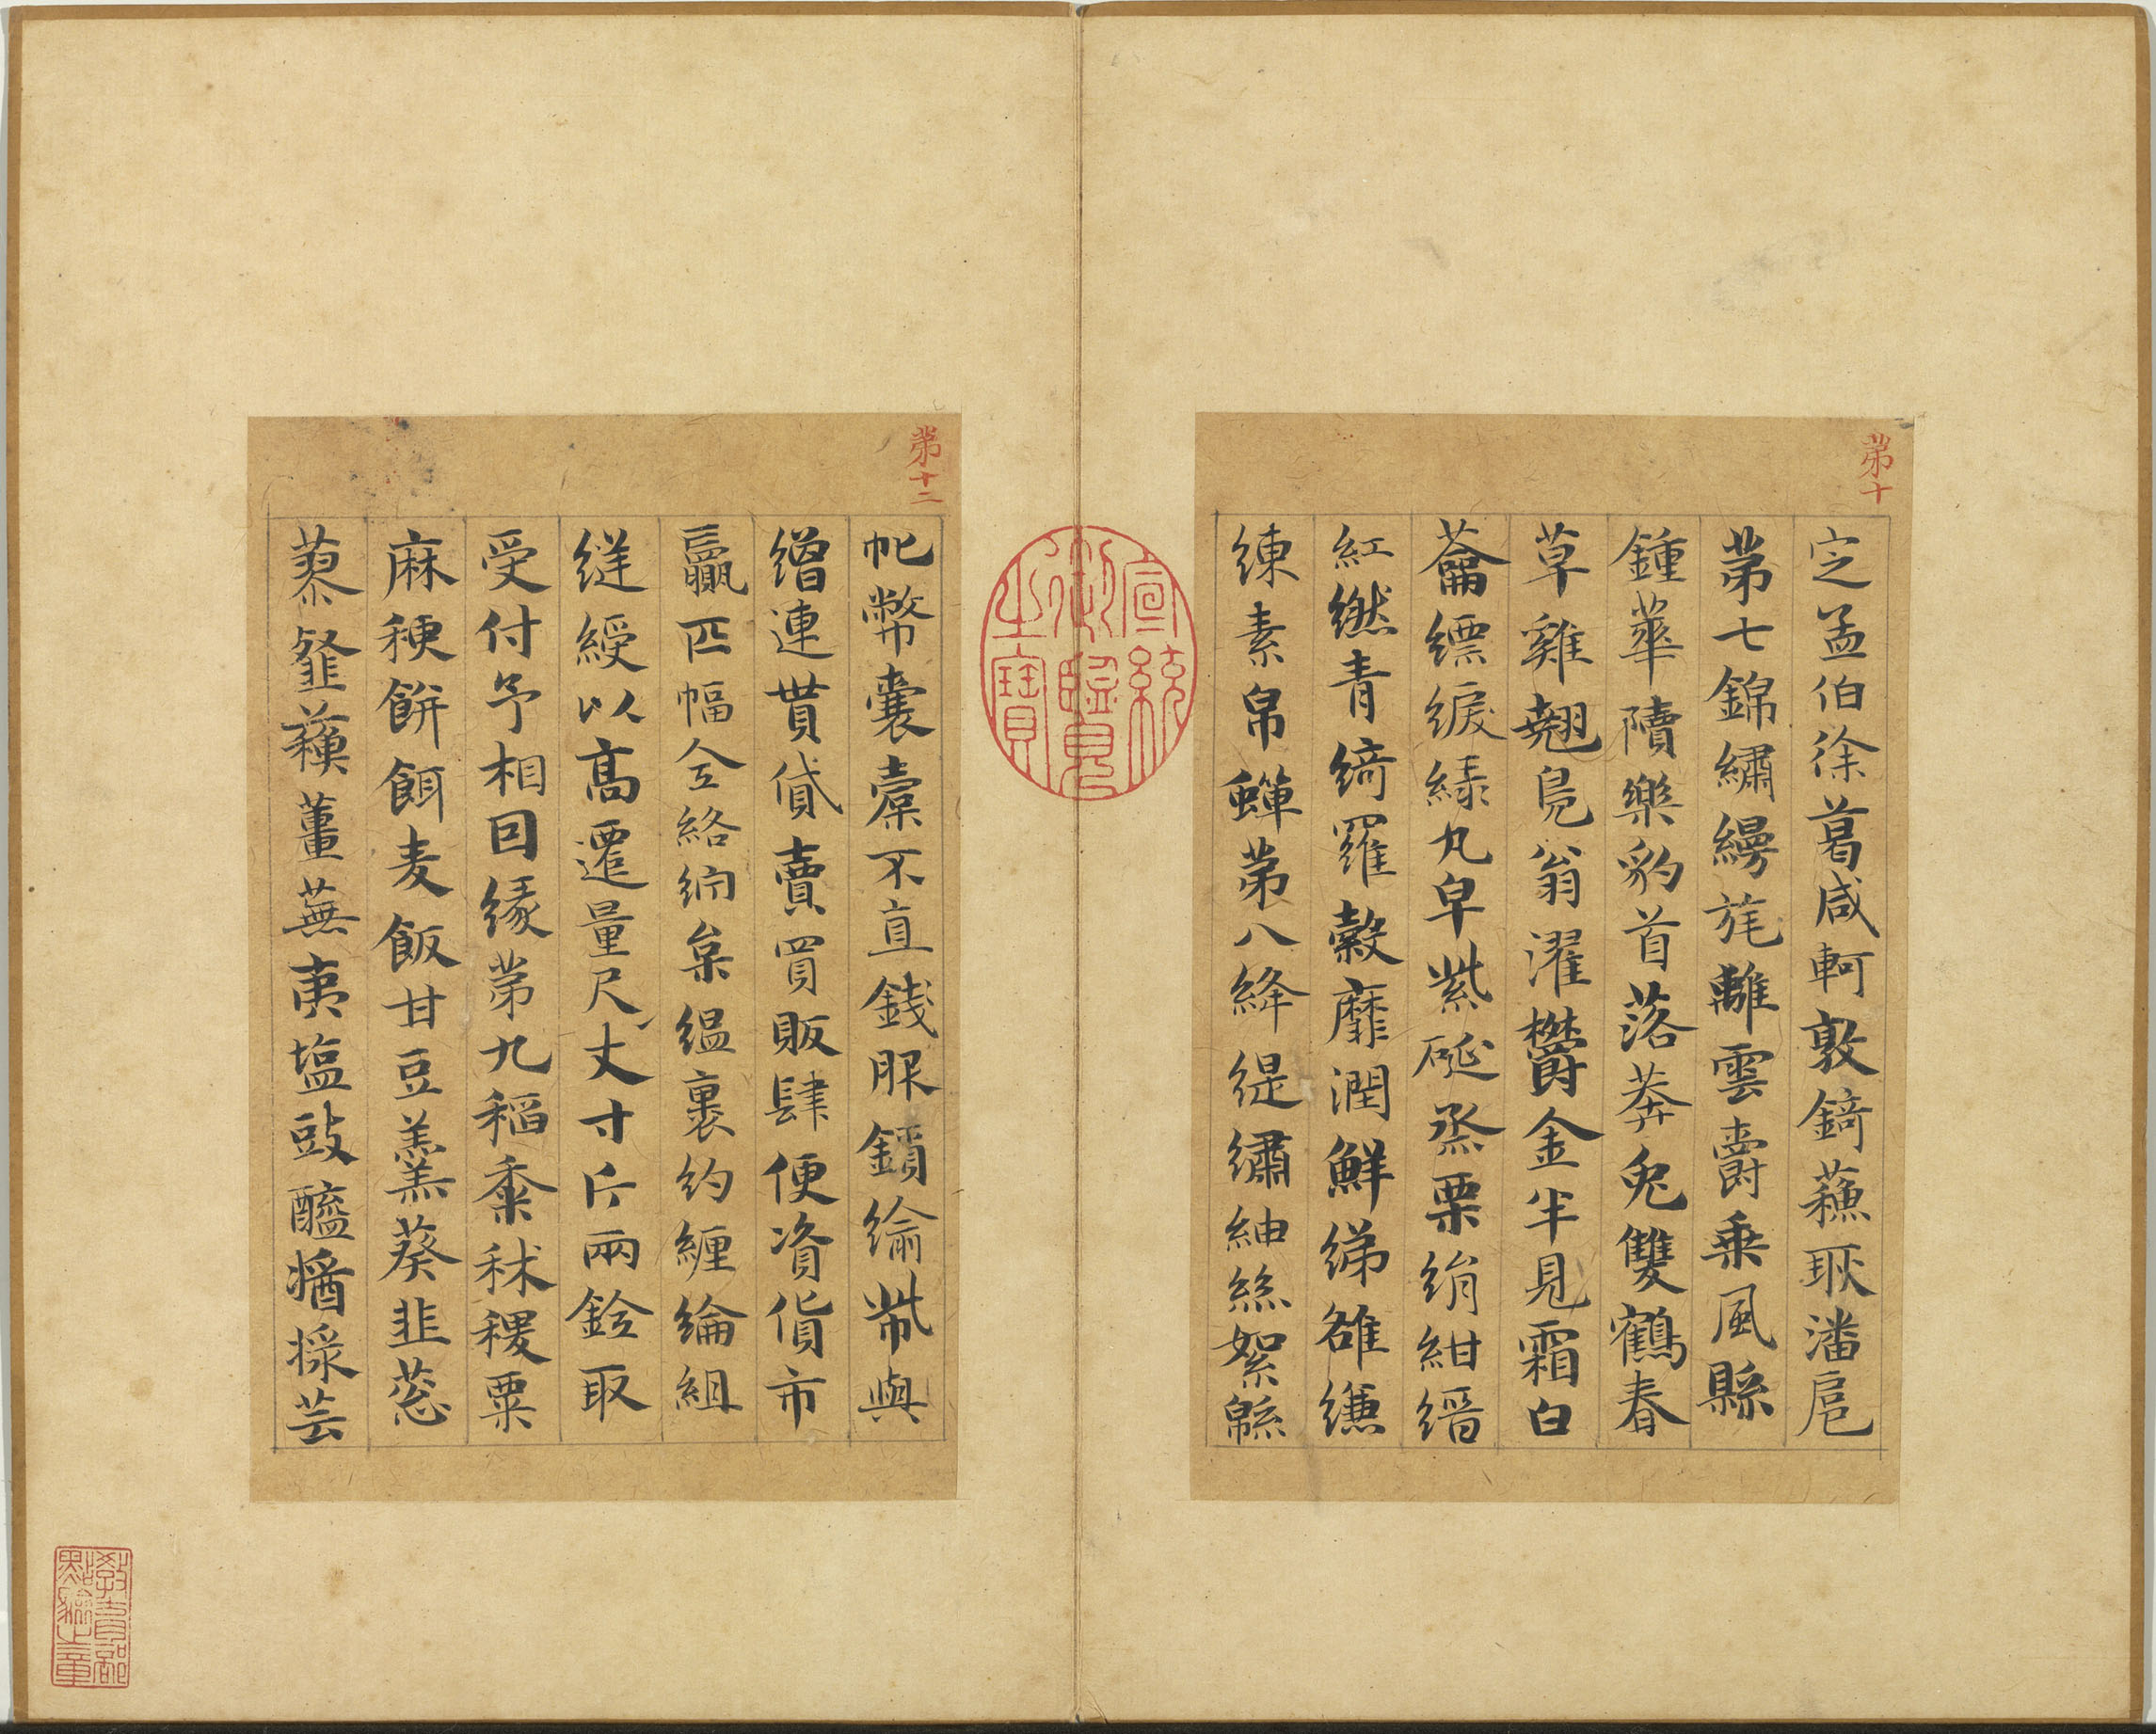 第十
定孟伯徐葛咸軻敦錡蘓耿潘扈
第七錦繡縵旄離雲爵乘風縣
鍾華隤樂豹首落莽兔雙鶴春
草雞翹鳧翁濯欝金半見霜白
蘥縹綟綠丸皁紫硟烝栗絹紺縉
紅繎青綺羅縠靡潤鮮綈雒縑
練素帛蟬第八絳緹繡紬絲絮綿
宣統御覽之寶
第十二
帊幣囊橐不直錢服鎻緰幋與
繒連貰貸賣買販肆便資貨市
贏匹幅全絡綯枲縕裹約纏綸組
縫綬以高遷量尺丈寸斤兩銓取
受付予相因緣第九稻黍秫稷粟
麻稉餅餌麦飯甘豆羹葵韭葱
蓼韰蘓薑蕪荑塩豉醯酱採芸
教育部點驗之章